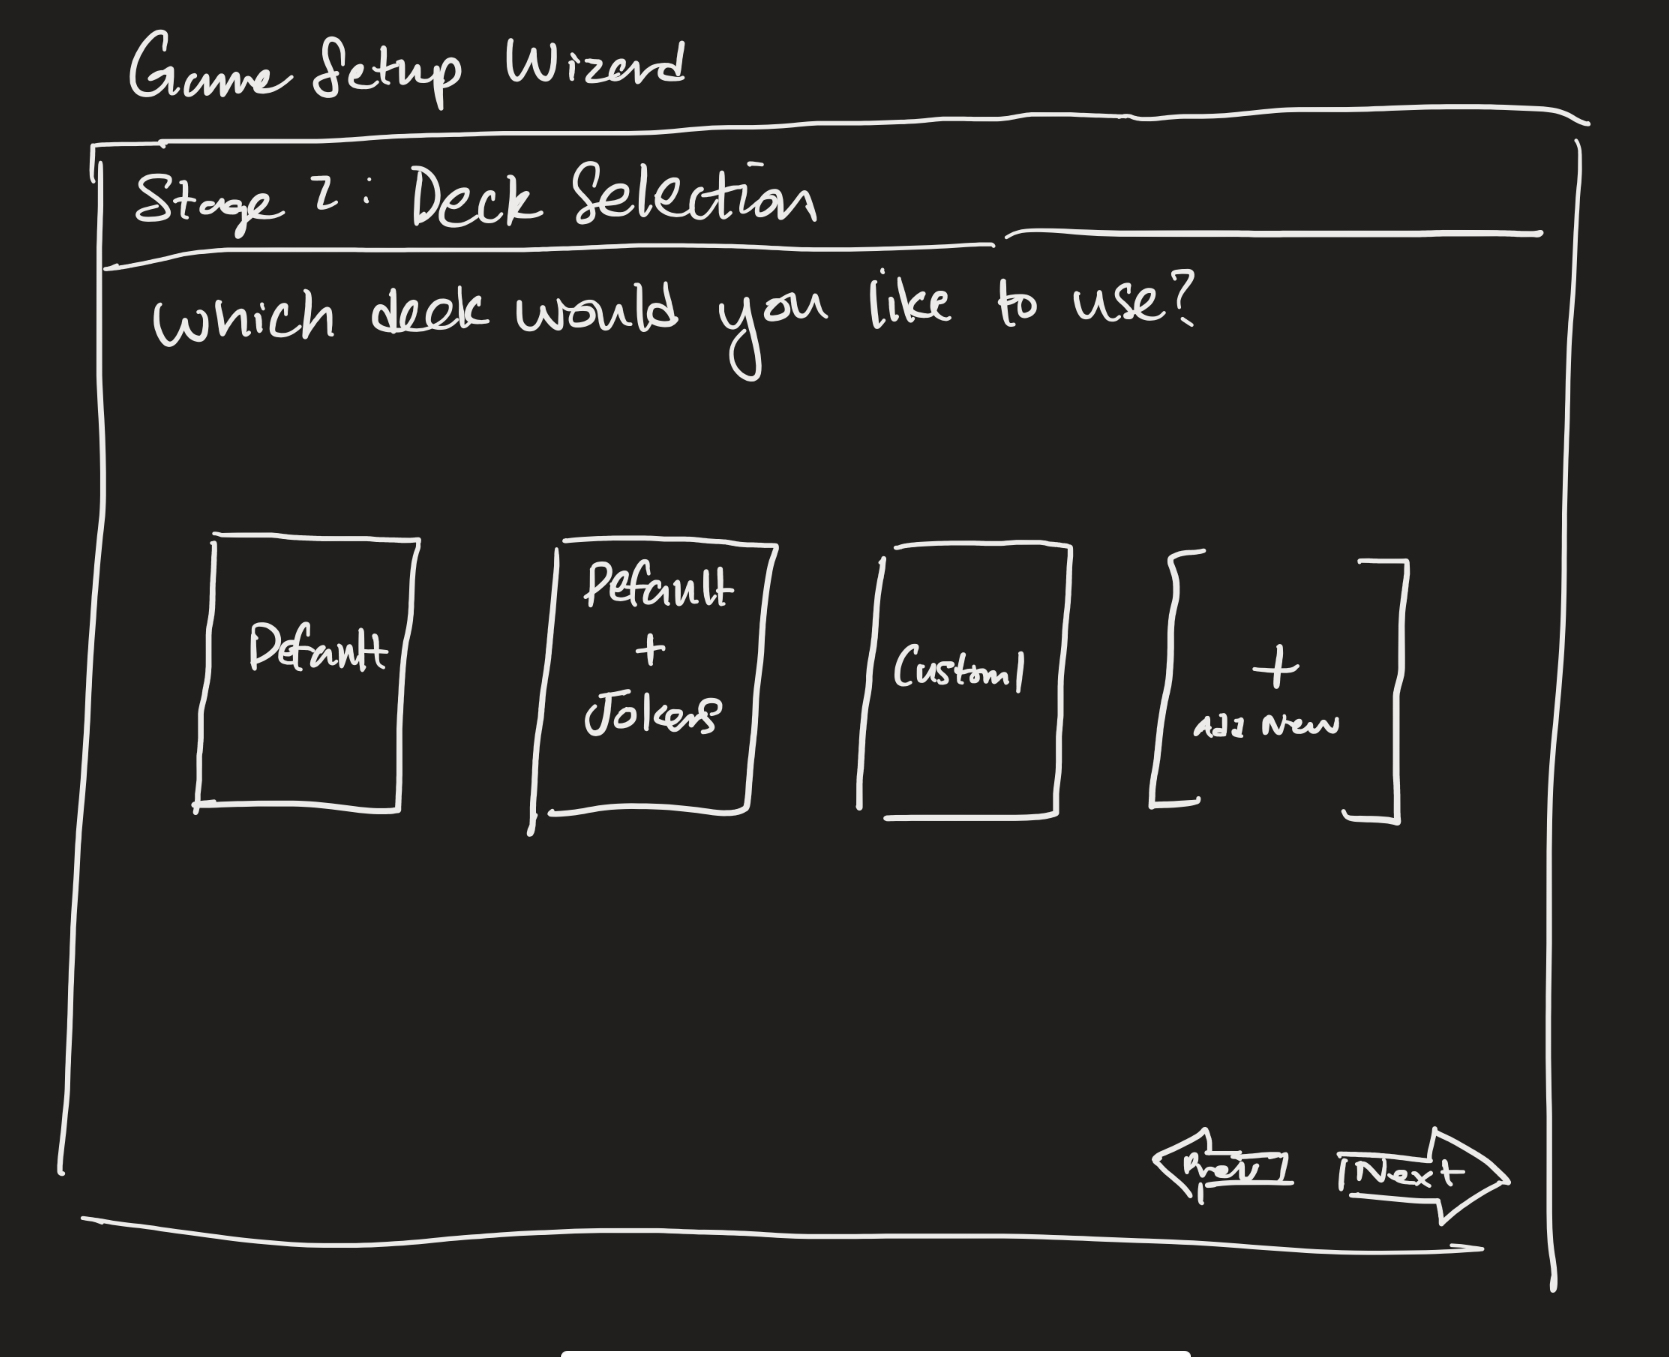 Game Setup Wizard
Stage 2: Deck Selection
Which deck would you like to use?
Default
Default
+
Jokers
Custom 1
+
Add New
Prev
Next